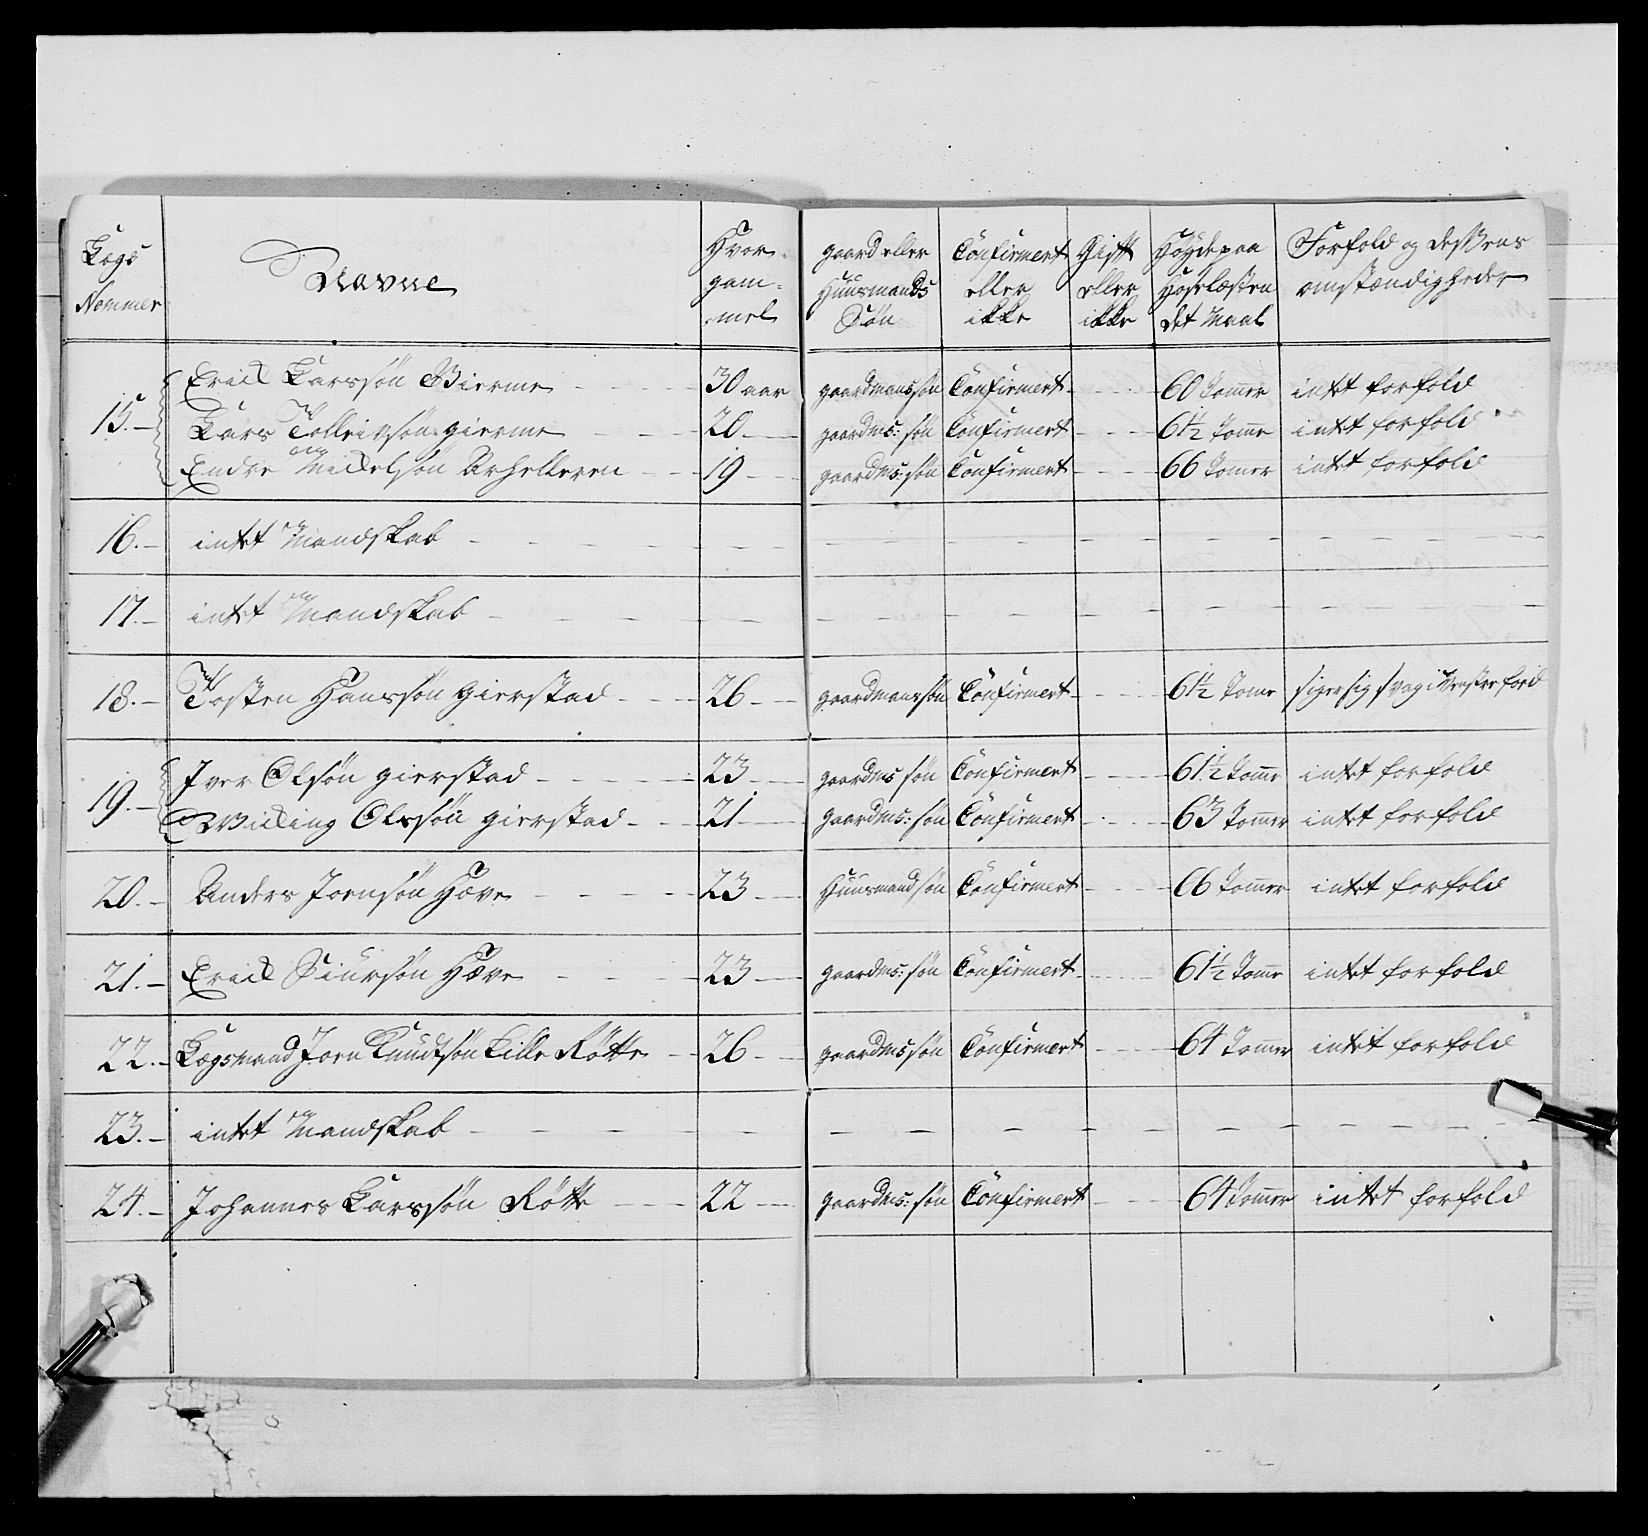 Lægs Nommer | Navne | Hvor gam- mel | gaard eller Huusmands Søn | Confirmert eller ikke | Gift eller ikke | Høyde paa Hoselæsten det Maal | Forfold og dessens omstændigheder
15. Erick Larssøn Gierme 30 aar gaardmans søn Confirmert 60 Tomer intet forfold
Lars Tolleivsøn gierme 20 gaardms: søn Confirmert 61½ Tome intet forfold
Endre Mickelsøn Arhelleren 19 gaardms: søn Confirmert 66 Tomer intet forfold
16. intet Mandskab
17. intet Mandskab
18. Tosten Hanssøn Gierstad 26 gaardmanssøn Confirmert 61½ Tome siger sig svag i Venster
19. Iver Olsøn gierstad 23 gaardms søn Confirmert 61½ Tome intet forfold
Olssøn gierstad 21 gaardms: søn Confirmert 63 Tommer intet forfold
20. Anders Joensøn Hove 23 Huusmand søn Confirmert 66 Tomer intet forfold
21. Erick Siursøn Hove 23 gaardms: søn Confirmert 61½ Tome intet forfold
22. Lægsmand Joen Knudtsøn Lille Røtte 26 gaardms søn Confirmert 64 Tomer intet forfold
23. intet Mandskab
24. Johannes Larssøn Røtte 22 gaardms: søn Confirmert 64 Tomer intet forfold